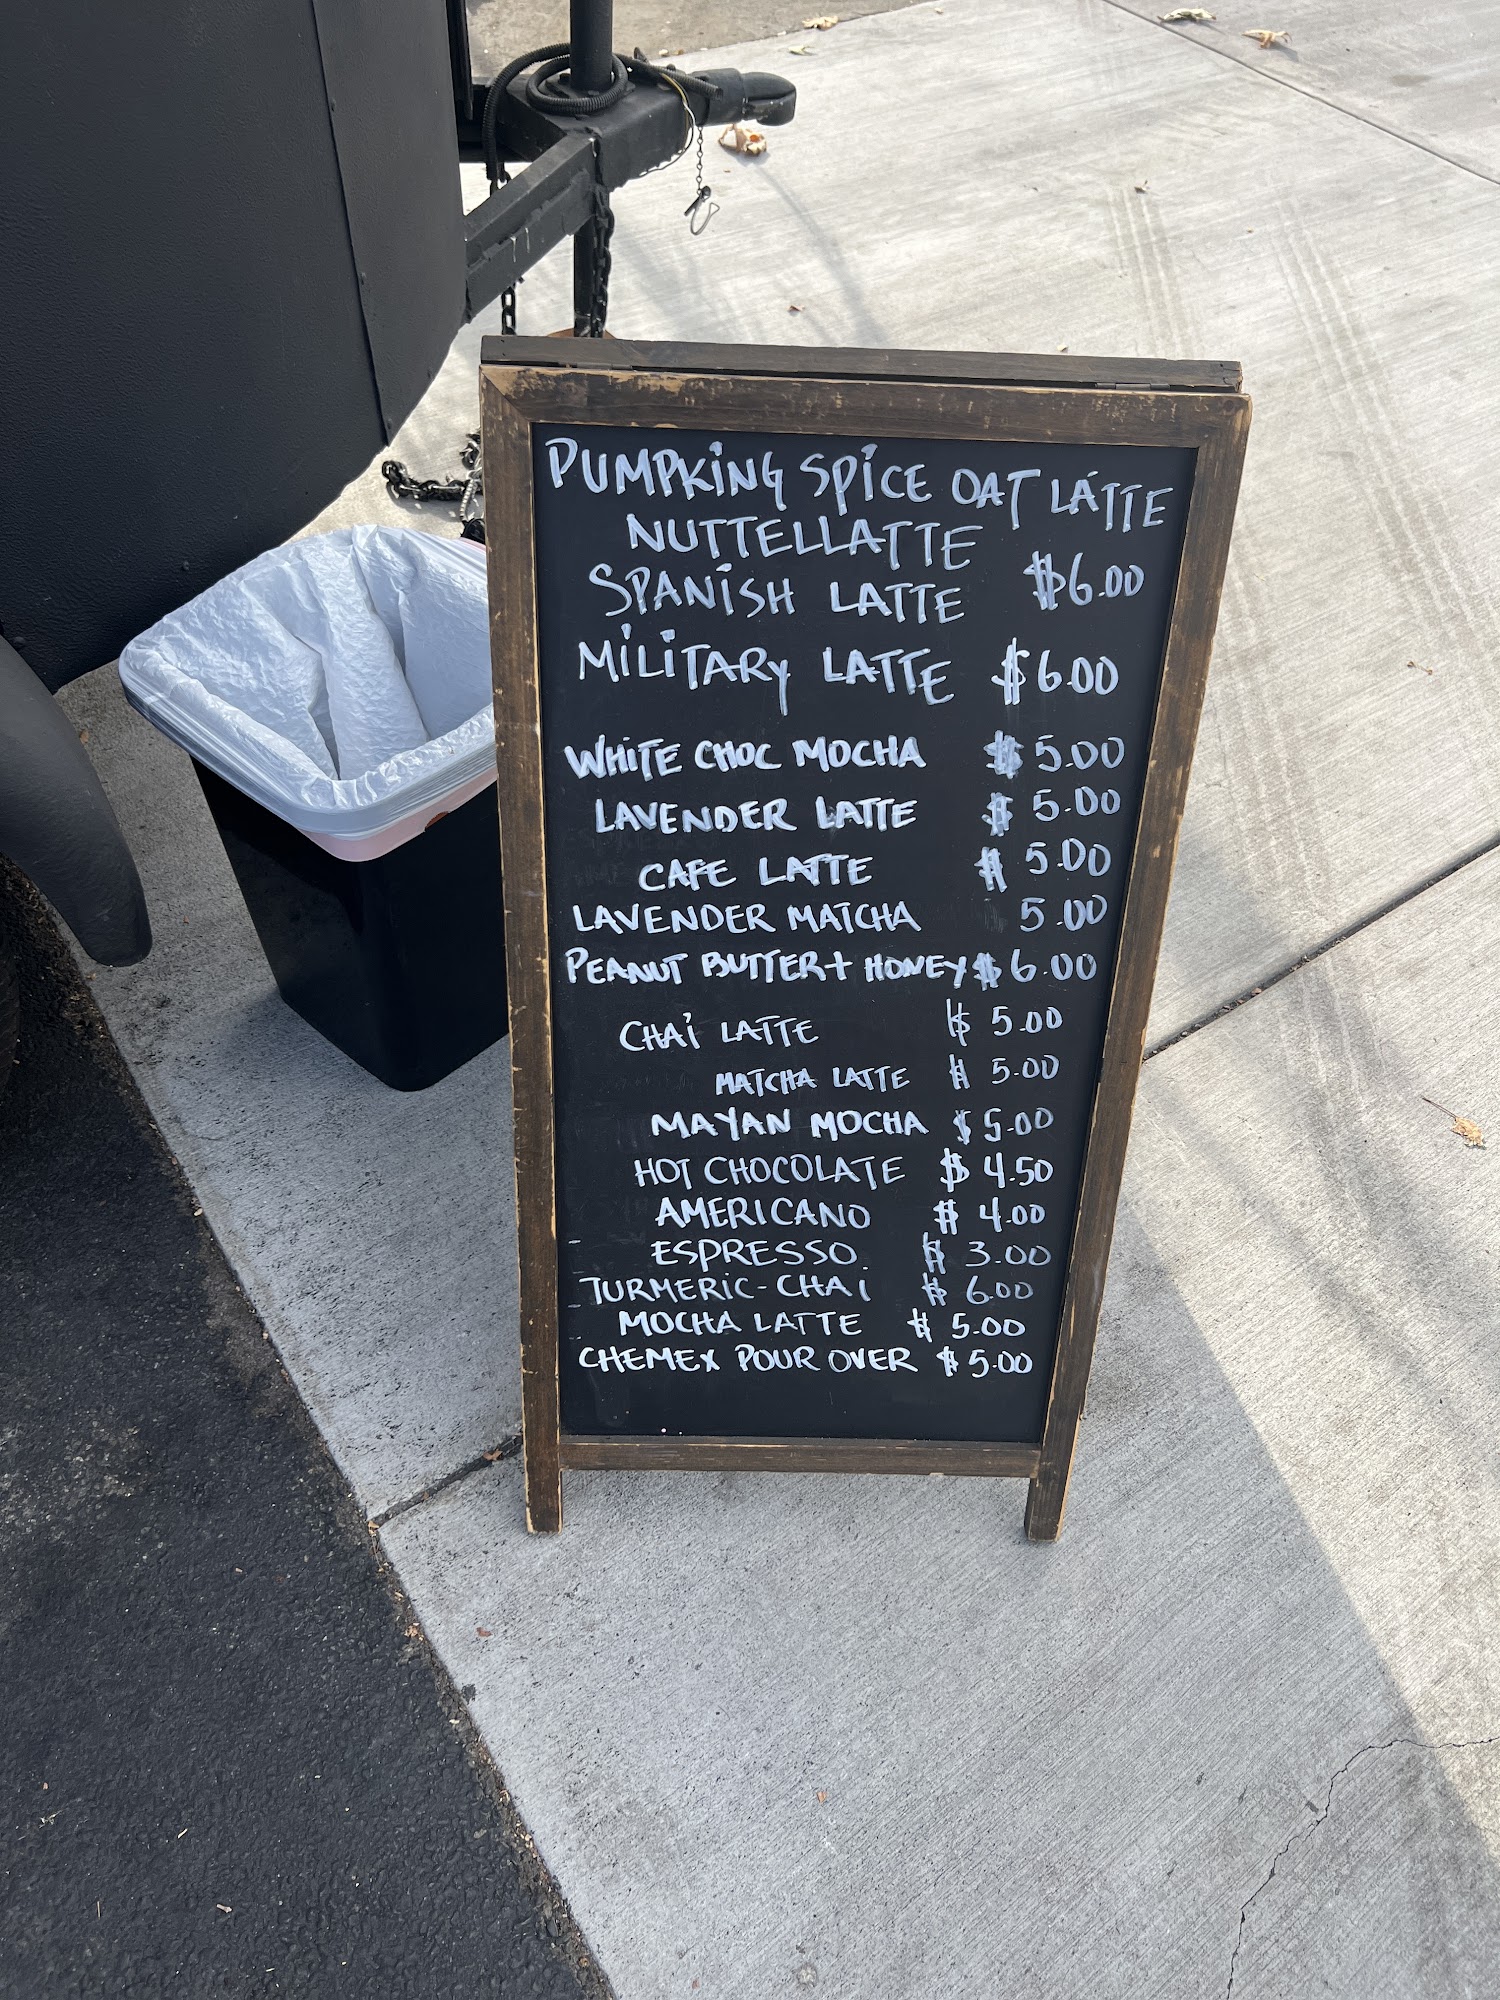 PUMPKING SPICE OAT LATTE
NUTTELLATTE
SPANISH LATTE $6.00
MILITARY LATTE $6.00
WHITE CHOC MOCHA $5.00
LAVENDER LATTE $5.00
CAFE LATTE $5.00
LAVENDER MATCHA 5.00
PEANUT BUTTER + HONEY $6.00
CHAI LATTE $5.00
MATCHA LATTE $5.00
MAYAN MOCHA $5.00
HOT CHOCOLATE $4.50
AMERICANO $4.00
ESPRESSO $3.00
TURMERIC-CHAI $6.00
MOCHA LATTE $5.00
CHEMEX POUR OVER $5.00